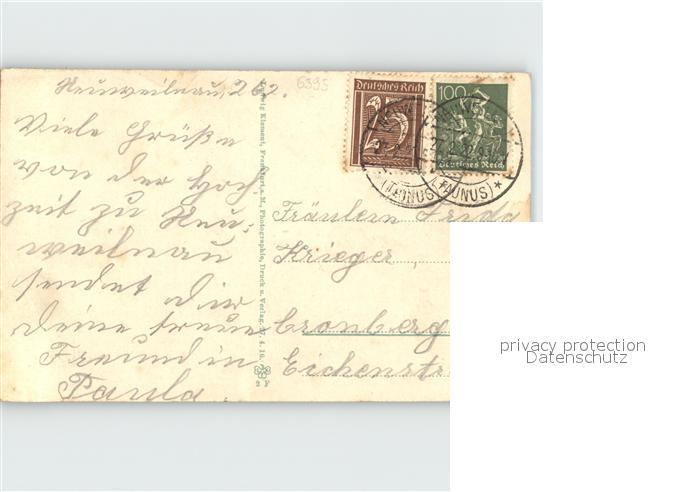 Neuweilnau, 2.2.
6395
Viele Grüße
von der Hoch
zeit zu Neu-
weilnau
sendet dir
deine treue
Freundin
Paula.
Ludwig Klement, Frankfurt a. M., Photographie, Druck u. Verlag. Nr. 4. 16.
Deutsches Reich
25
100
Deutsches Reich
(TAUNUS)
(TAUNUS) *
Fräulein Frida
Krieger
Cronberg
Eichenstr
privacy protection
Datenschutz